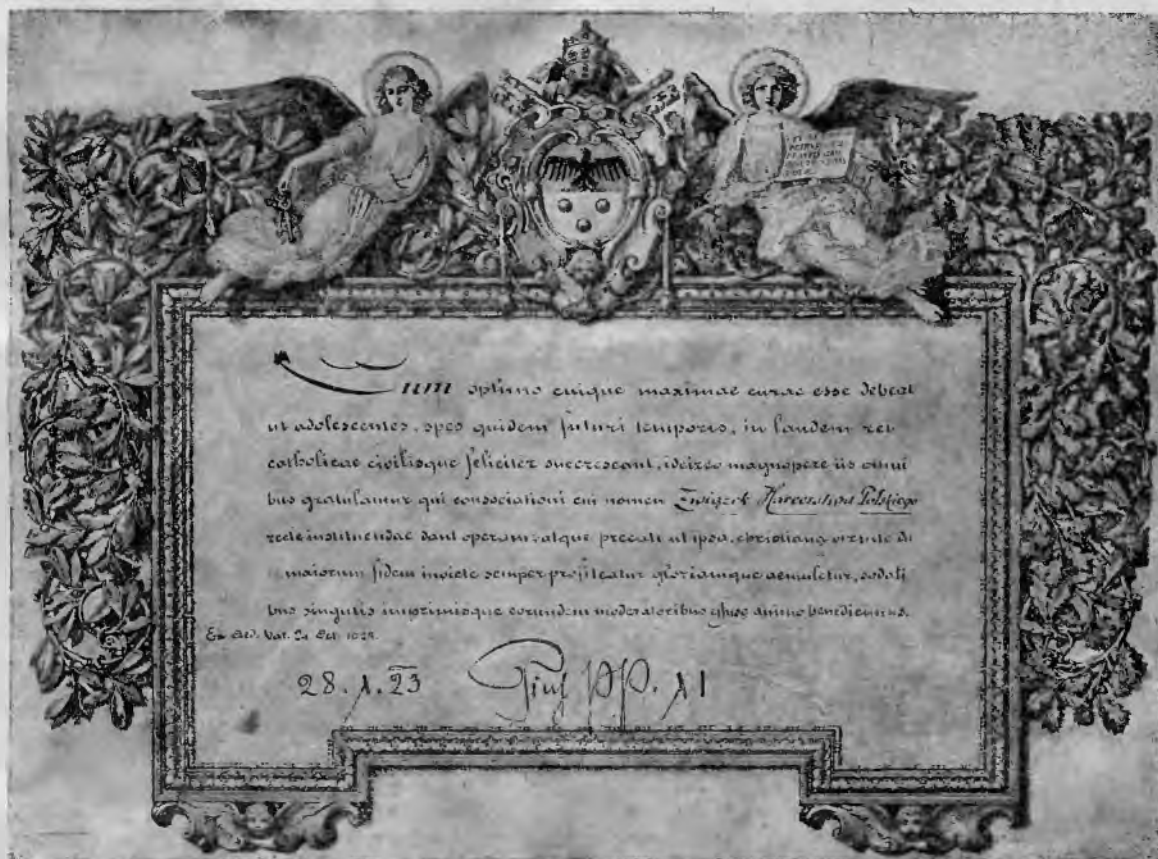 Cum optimo cuique maximae curae esse debeat
ut adolescentes, spes quidem futuri temporis, in laudem rei
catholicae civilisque feliciter succrescant, idcirco magnopere iis omni
bus gratulamur qui consociationi cui nomen Związek Harcerstwa Polskiego
recte instituendae dant operam, atque precati ut ipsa, christiana virtute
maiorum fidem invicte semper profiteatur gloriamque aemuletur, sodali
bus singulis imprimisque eorundem moderatoribus animo benedicimus.
Ex Aed. Vat. Oct.
28. X. 23 Pius PP. XI